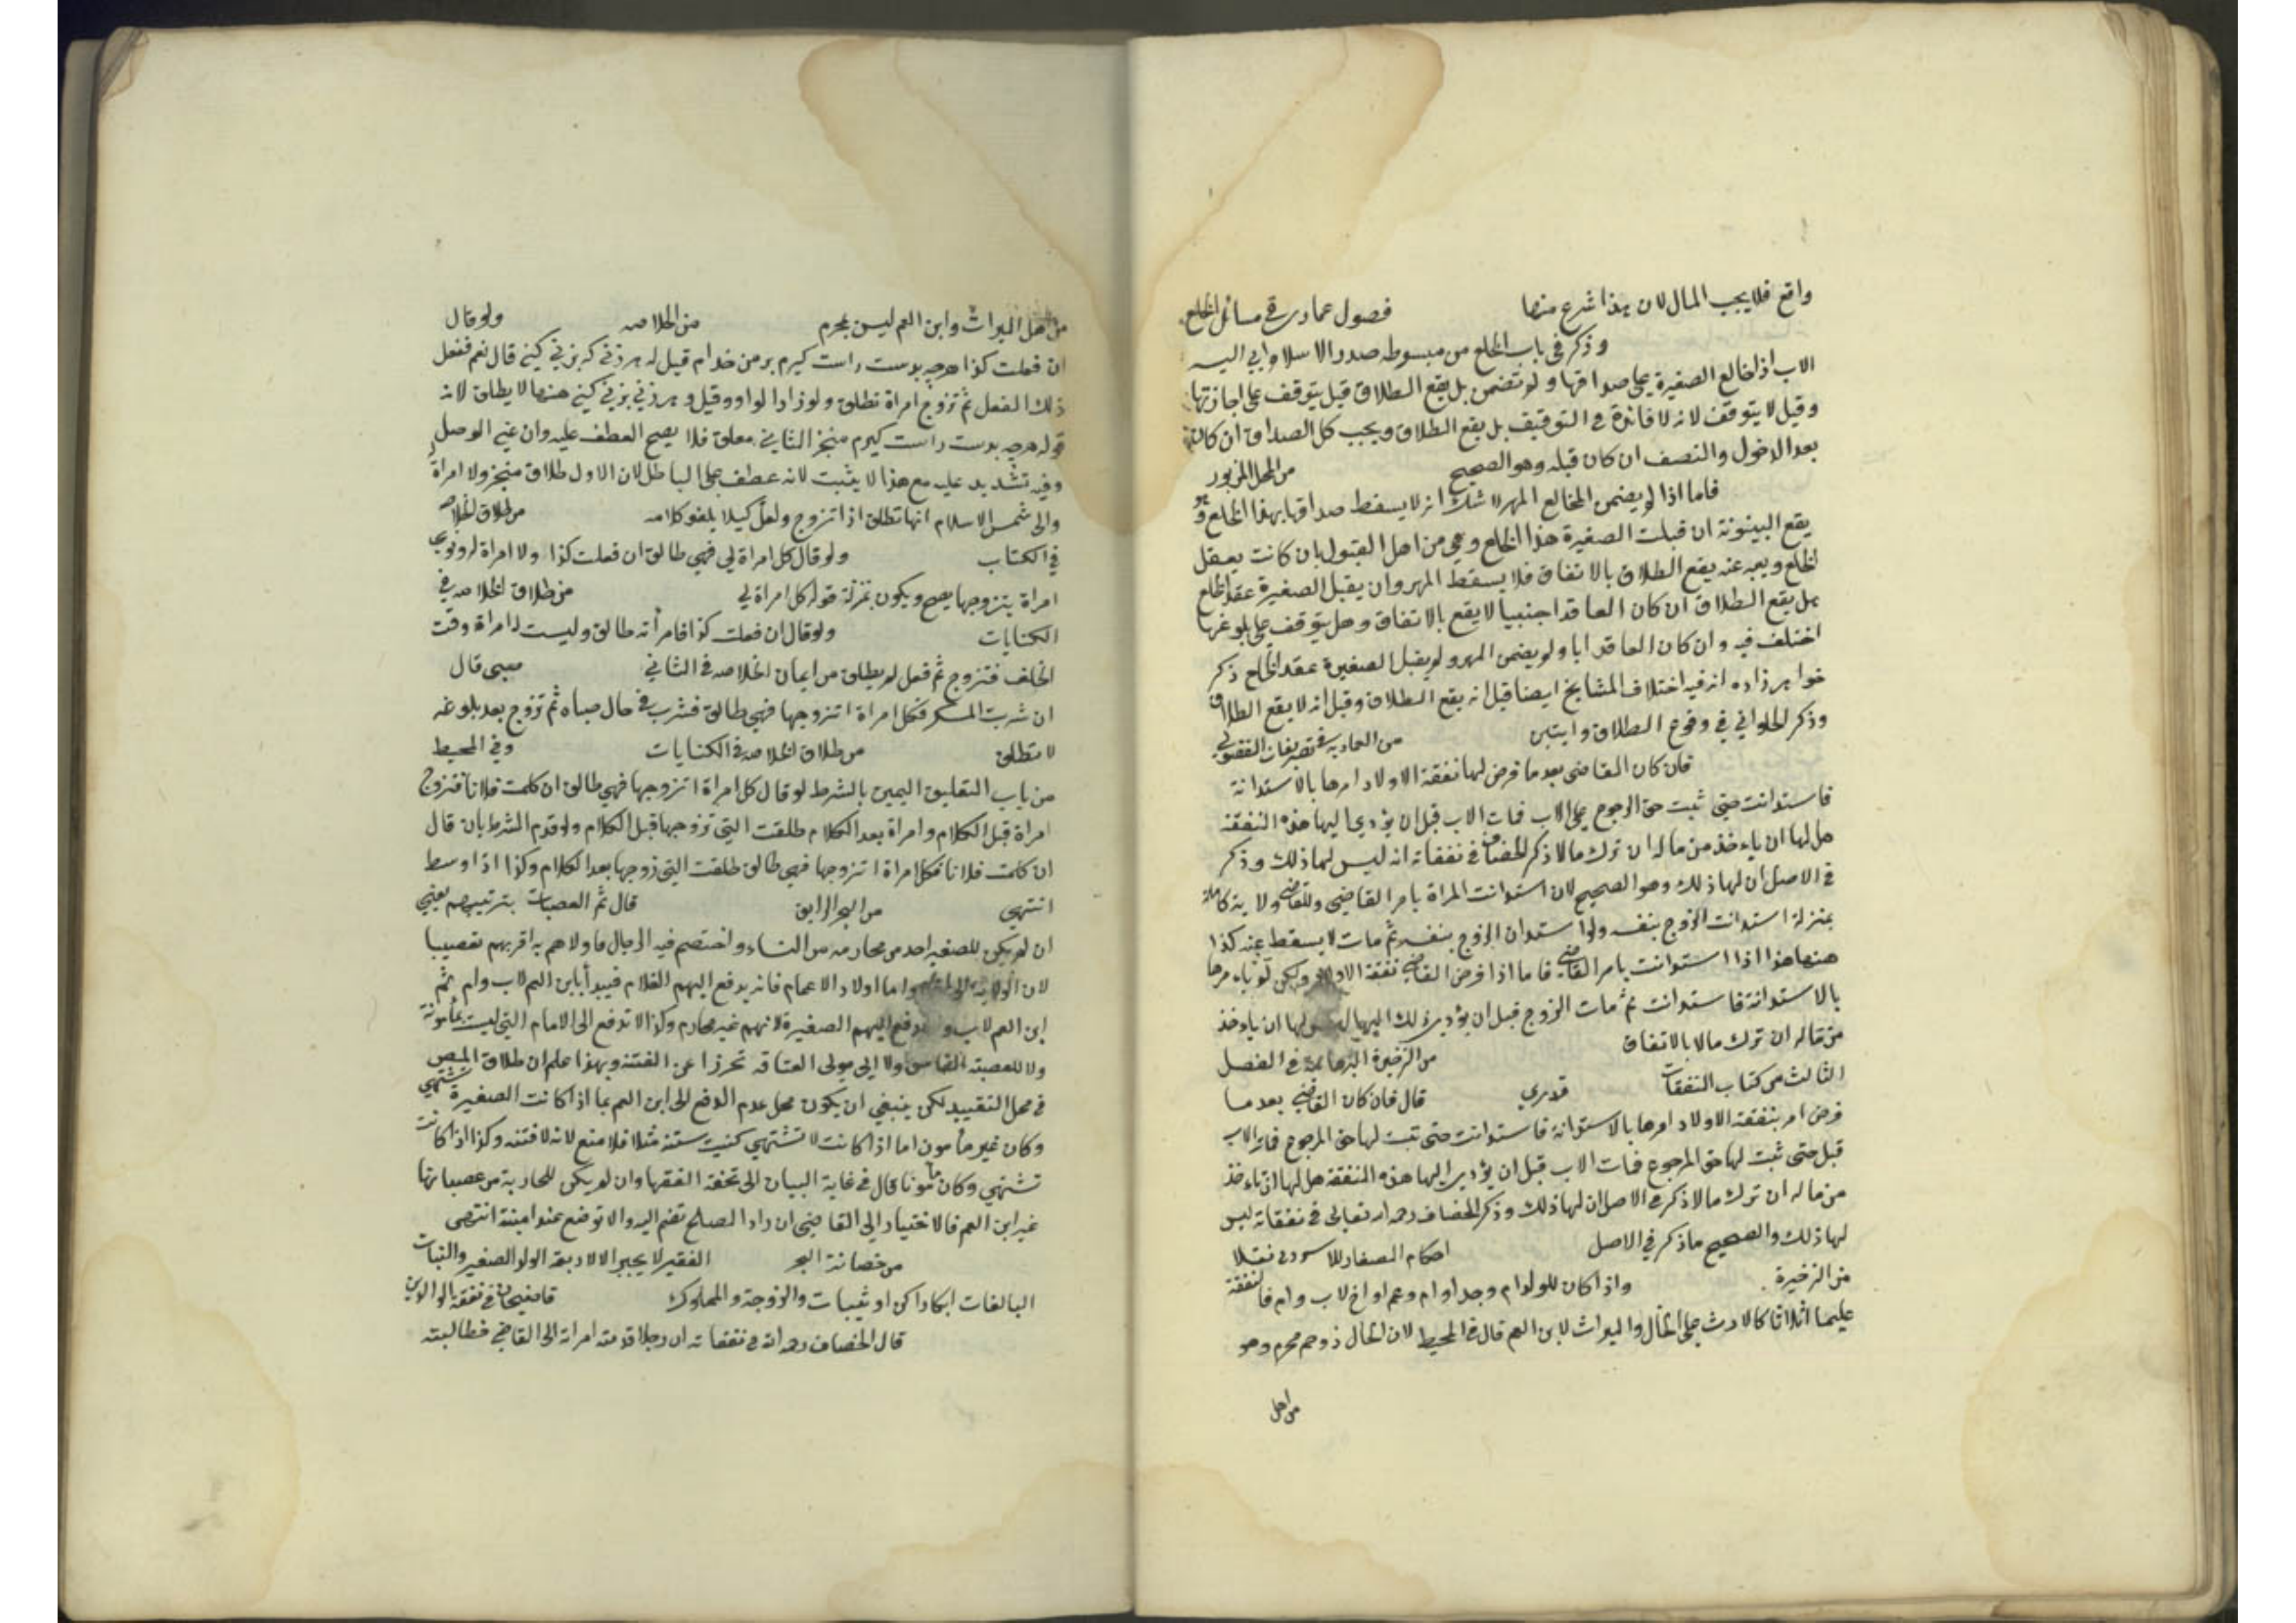 واقع فلا يجب المال لان هذا شرع منها فصول عمادى فى مسائل الخلع
وذكر فى باب الخلع من مبسوطه صدر الاسلام ابى اليسر
الاب اذا خالع الصغيرة على صداقها ولم تضمن بل يقع الطلاق قيل يتوقف على اجازتها
وقيل لا يتوقف لانه لا فائدة فى التوقيف بل يقع الطلاق ويجب كل الصداق ان كان
بعد الدخول والنصف ان كان قبله وهو الصحيح من المحل المزبور
فاما اذا لم يضمن المخالع المهر لا شك انه لا يسقط صداقها بهذا الخلع
يقع البينونة ان قبلت الصغيرة هذا الخلع وهى من اهل القبول بان كانت يعقل
الخلع ويعبر عنه يقع الطلاق بالاتفاق فلا يسقط المهر وان يقبل الصغيرة عقد الخلع
هل يقع الطلاق ان كان العاقد اجنبيا لا يقع بالاتفاق وهل يتوقف على بلوغها
اختلف فيه وان كان العاقد ابا ولم يضمن المهر ولم يقبل الصغيرة عقد الخلع ذكر
خواهر زاده انه فيه اختلاف المشايخ ايضا قيل انه يقع الطلاق وقيل انه لا يقع الطلاق
وذكر الحلوانى فى وقوع الطلاق روايتين من العماديه فى تصرفات الفضولى
فان كان القاضى بعد ما فرض لها نفقة الاولاد امرها بالاستدانة
فاستدانت حتى ثبت حق الرجوع على الاب فمات الاب قبل ان يؤدى اليها هذه النفقة
هل لها ان ياءخذ من ماله ان ترك مالا ذكر الخصاف فى نفقاته انه ليس لها ذلك وذكر
فى الاصل ان لها ذلك وهو الصحيح لان استدانت المراة بامر القاضى وللقاضى ولاية كاملة
بمنزلة استدانت الزوج بنفسه ولو استدان الزوج بنفسه ثم مات لا يسقط عنه كذا
هنها هذا اذا استدانت بامر القاضى فاما اذا فرض القاضى نفقة الاولاد ولكن لم ياءمرها
بالاستدانة فاستدانت ثم مات الزوج قبل ان يؤدى ذلك اليها ليس لها ان ياءخذ
من ماله ان ترك مالا بالاتفاق من الذخيرة البرهانية فى الفصل
الثالث من كتاب النفقات قدرى قال فان كان القاضى بعد ما
فرض امر بنفقة الاولاد امرها بالاستدانة فاستدانت حتى ثبت لها حق الرجوع فمات الاب
قبل حتى ثبت لها حق الرجوع فمات الاب قبل ان يؤدى اليها هذه النفقة هل لها ان تاءخذ
من ماله ان ترك مالا ذكر فى الاصل ان لها ذلك وذكر الخصاف رحمه الله تعالى فى نفقاته ليس
لها ذلك والصحيح ما ذكر فى الاصل احكام الصغار للاسروشنى نقلا
من الذخيرة واذا كان للولد ام وجد او ام وعم او اخ لاب وام فالنفقة
عليهما اثلاثا كالارث على الخال والميراث لابن العم قال فى المحيط لان الخال ذو رحم محرم وهو
من اهل
من اهل الميراث وابن العم ليس بمحرم من الخلاصه ولو قال
ان فعلت كذا هرچه بدست راست كيرم بر من حرام قيل له هر زنى كه بزنى كنى قال نعم ففعل
ذلك الفعل ثم تزوج امراة تطلق ولو زاد الواو وقيل و هر زنى بزنى كنى هنها لا يطلق لانه
قوله هرچه بدست راست كيرم منجز الثانى معلق فلا يصح العطف عليه وان عنى الوصل
وفيه تشديد عليه مع هذا لا يثبت لانه عطف على الباطل لان الاول طلاق منجز ولا امراة
والى شمس الاسلام انها تطلق اذا تزوج ولعل كيلا يلغو كلامه من طلاق الخلاصه
فى الكتاب ولو قال كل امراة لى فهى طالق ان فعلت كذا ولا امراة له ونوى
امراة يتزوجها يصح ويكون بمنزلة قوله كل امراة لى من طلاق الخلاصه فى
الكنايات ولو قال ان فعلت كذا فامرأته طالق وليست له امراة وقت
الحلف فتزوج ثم فعل لم يطلق من ايمان الخلاصه فى الثانى صبى قال
ان شربت المسكر فكل امراة اتزوجها فهى طالق فشرب فى حال صباه ثم تزوج بعد بلوغه
لا تطلق من طلاق الخلاصه فى الكنايات وفى المحيط
من باب التعليق اليمين بالشرط لو قال كل امراة اتزوجها فهى طالق ان كلمت فلانا فتزوج
امراة قبل الكلام وامراة بعد الكلام طلقت التى تزوجها قبل الكلام ولو قدم الشرط بان قال
ان كلمت فلانا فكل امراة اتزوجها فهى طالق طلقت التى زوجها بعد الكلام وكذا اذا وسط
انتهى من البحر الرايق قال ثم العصبات بترتيبهم يعنى
ان لم يكن للصغير احد من محارمه من النساء واختصم فيه الرجال فاولاهم به اقربهم تعصيبا
لان الولاية واما اولاد الاعمام فانه يدفع اليهم الغلام فيبدأ بابن العم لاب وام ثم
ابن العم لاب و يدفع اليهم الصغيرة لانهم غير محارم وكذا لا تدفع الى الامام التى ليست بمأمونة
ولا للعصبة الفاسق ولا الى مولى العتاقه تحرزا عن الفتنه وبهذا علم ان طلاق المص
فى محل التقييد لكن ينبغى ان يكون محل عدم الدفع الى ابن العم بما اذا كانت الصغيرة تشتهى
وكان غير مأمون اما اذا كانت لا تشتهى كبنت سنة مثلا فلا منع لانه لا فتنه وكذا اذا كانت
تشتهى وكان مأمونا قال فى غاية البيان الى تحفة الفقها وان لم يكن للجارية من عصباتها
غير ابن العم فالاختيار الى القاضى ان راه اصلح تضم اليه والا توضع عند امينة انتهى
من حضانة البحر الفقير لا يجبر الا لاربعة الولد الصغير والبنات
البالغات ابكارا كن او ثيبات والزوجة والمملوك قاضيخان فى نفقة الوالدين
قال الخصاف رحمه الله فى نفقاته ان رجلا قدمته امراته الى القاضى فطالبته